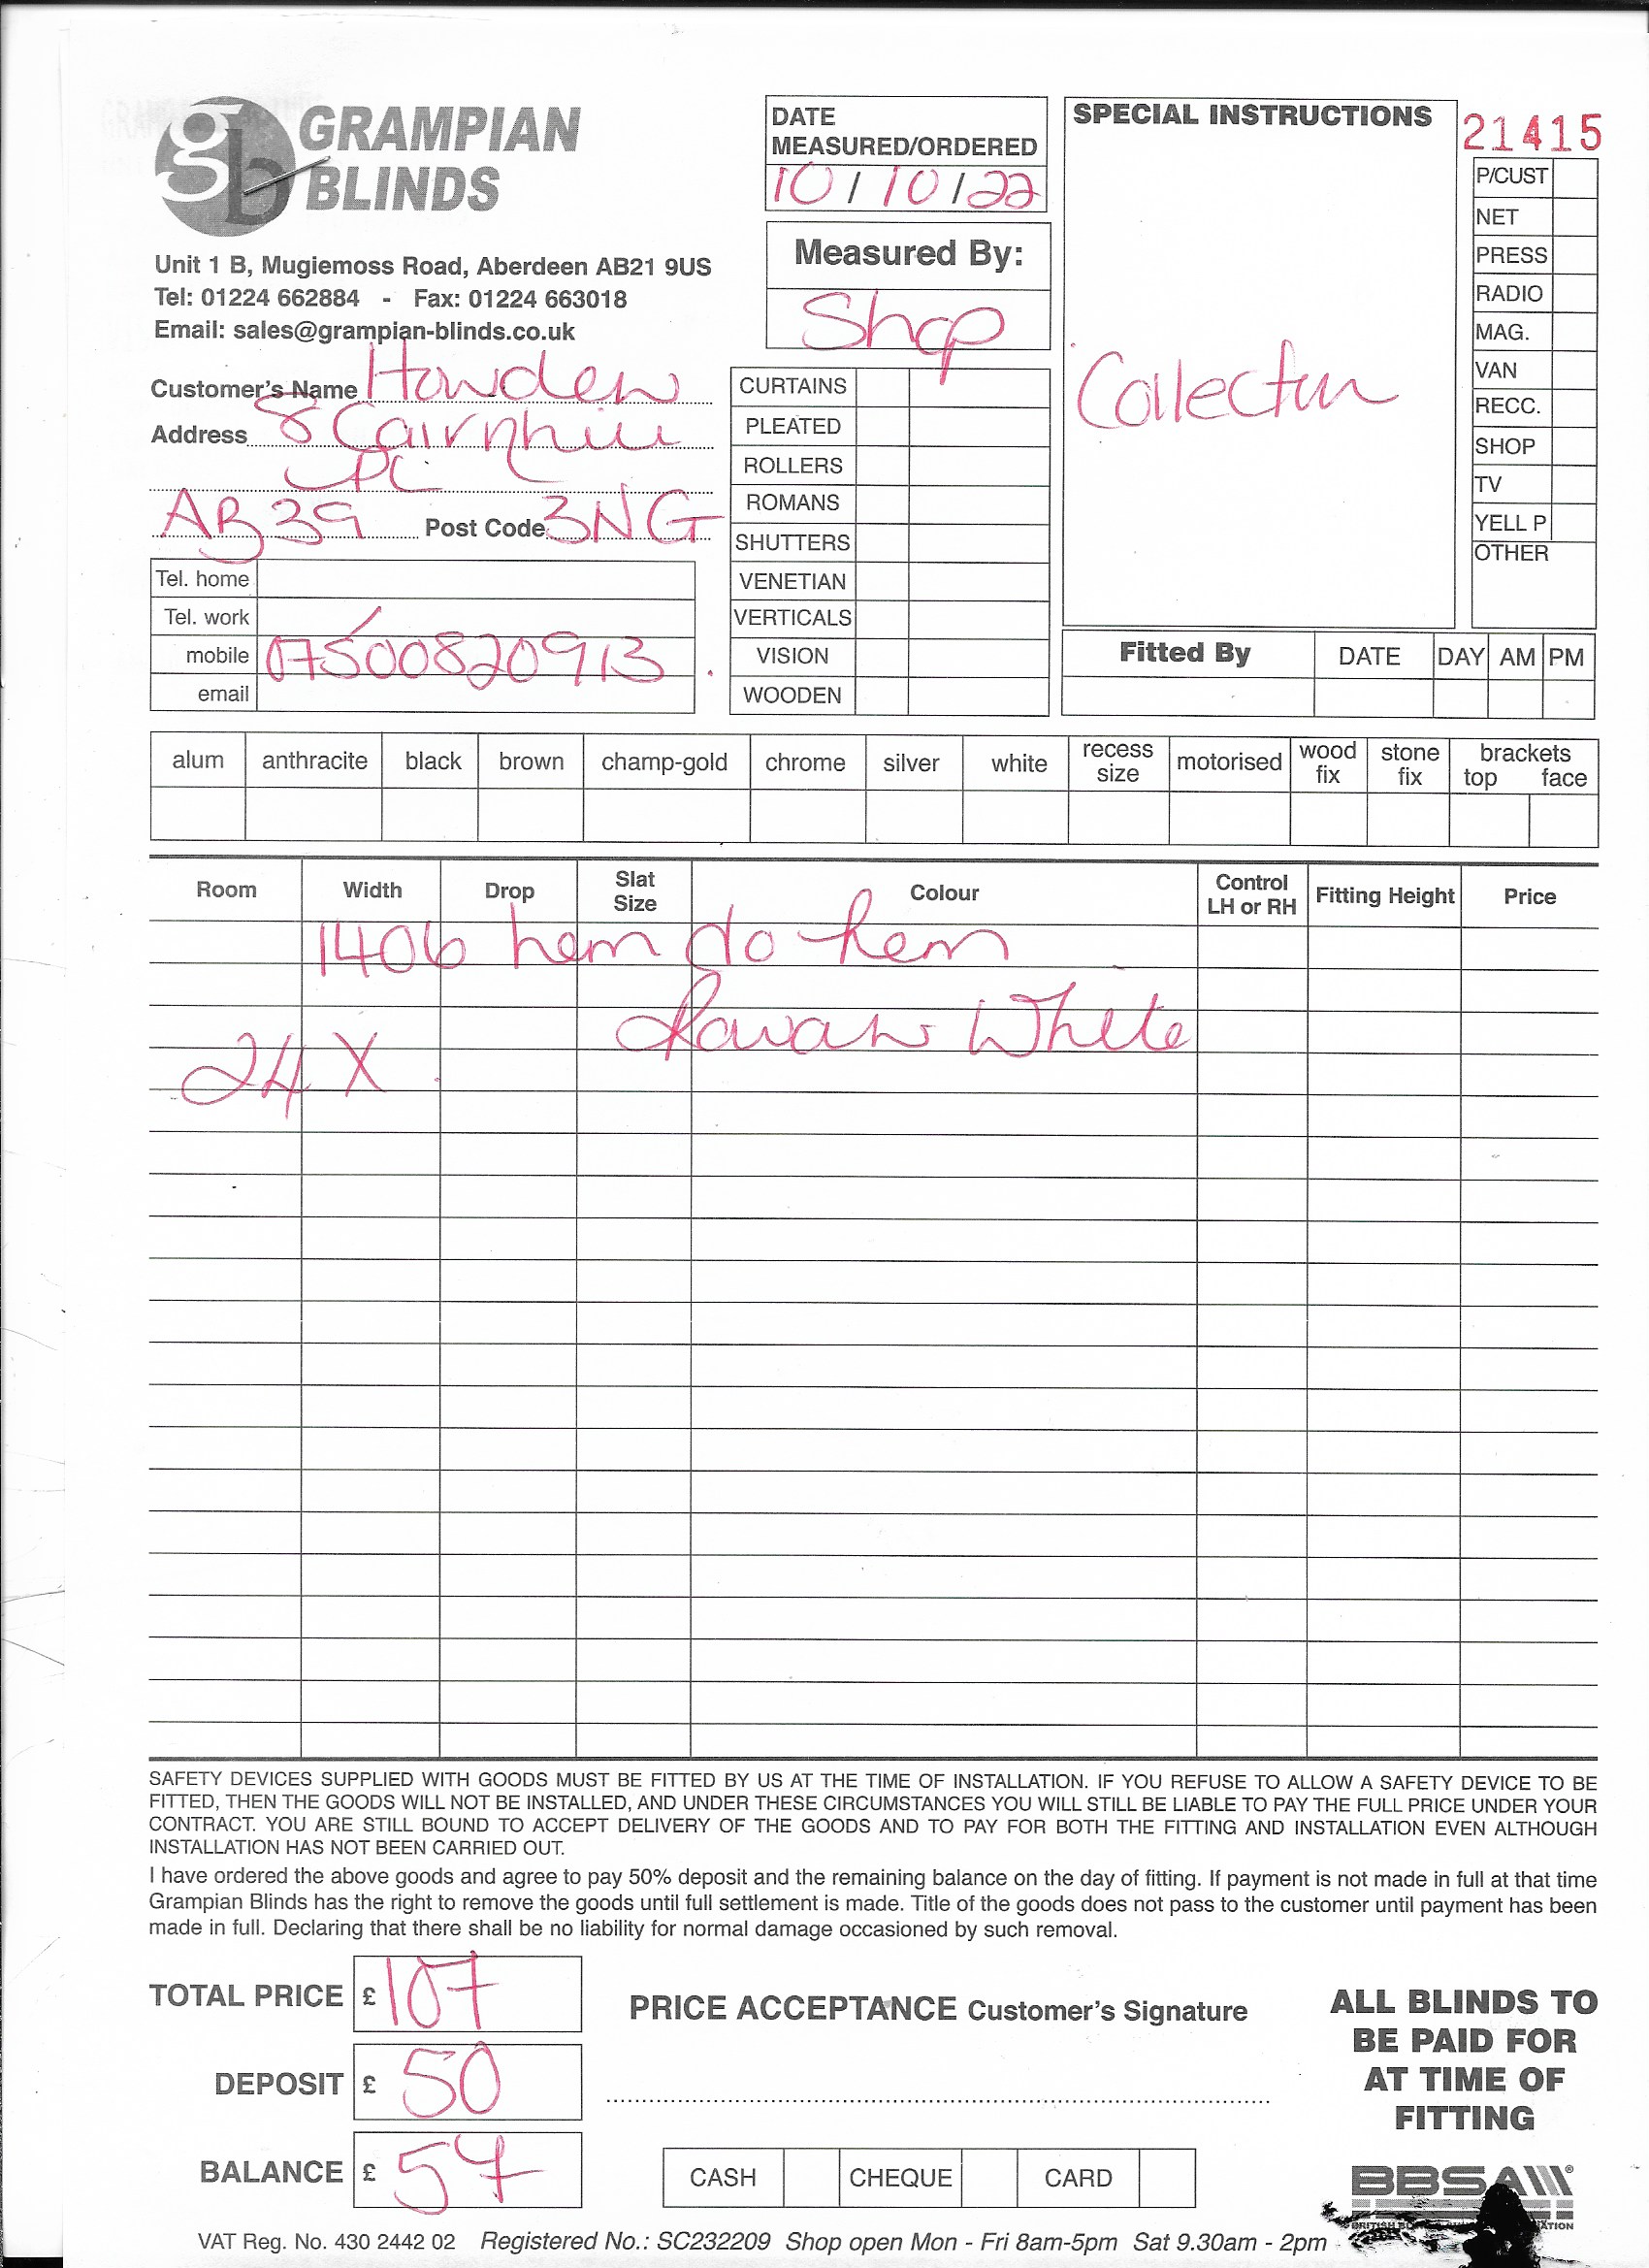 GRAMPIAN
BLINDS
Unit 1 B, Mugiemoss Road, Aberdeen AB21 9US
Tel: 01224 662884 - Fax: 01224 663018
Email: sales@grampian-blinds.co.uk
Customer's Name Howden
Address 8 Cairnhill
Pl
AB39 Post Code 3NG
Tel. home
Tel. work
mobile 07500820913
email
DATE
MEASURED/ORDERED
10/10/22
Measured By:
Shop
CURTAINS
PLEATED
ROLLERS
ROMANS
SHUTTERS
VENETIAN
VERTICALS
VISION
WOODEN
SPECIAL INSTRUCTIONS
Collection
21415
P/CUST
NET
PRESS
RADIO
MAG.
VAN
RECC.
SHOP
TV
YELL P
OTHER
Fitted By DATE DAY AM PM
alum anthracite black brown champ-gold chrome silver white recess size motorised wood fix stone fix brackets top face
Room Width Drop Slat Size Colour Control LH or RH Fitting Height Price
1406 hem to hem
White
24 X
SAFETY DEVICES SUPPLIED WITH GOODS MUST BE FITTED BY US AT THE TIME OF INSTALLATION. IF YOU REFUSE TO ALLOW A SAFETY DEVICE TO BE
FITTED, THEN THE GOODS WILL NOT BE INSTALLED, AND UNDER THESE CIRCUMSTANCES YOU WILL STILL BE LIABLE TO PAY THE FULL PRICE UNDER YOUR
CONTRACT. YOU ARE STILL BOUND TO ACCEPT DELIVERY OF THE GOODS AND TO PAY FOR BOTH THE FITTING AND INSTALLATION EVEN ALTHOUGH
INSTALLATION HAS NOT BEEN CARRIED OUT.
I have ordered the above goods and agree to pay 50% deposit and the remaining balance on the day of fitting. If payment is not made in full at that time
Grampian Blinds has the right to remove the goods until full settlement is made. Title of the goods does not pass to the customer until payment has been
made in full. Declaring that there shall be no liability for normal damage occasioned by such removal.
TOTAL PRICE £ 107
DEPOSIT £ 50
BALANCE £ 57
PRICE ACCEPTANCE Customer's Signature
CASH CHEQUE CARD
ALL BLINDS TO
BE PAID FOR
AT TIME OF
FITTING
BBSA
VAT Reg. No. 430 2442 02 Registered No.: SC232209 Shop open Mon - Fri 8am-5pm Sat 9.30am - 2pm